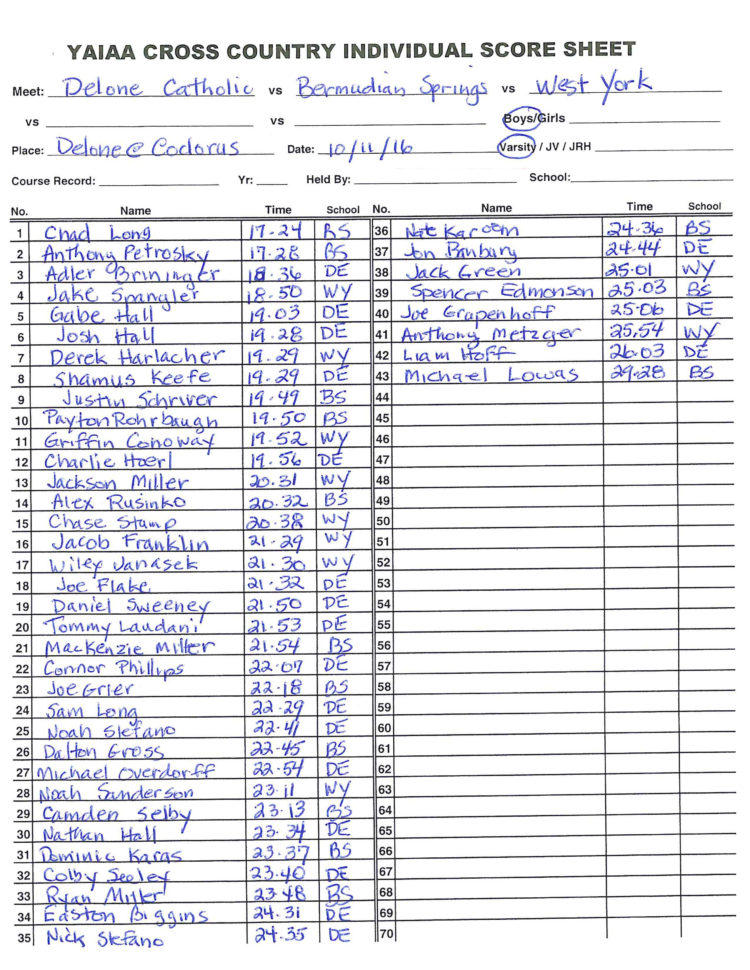 YAIAA CROSS COUNTRY INDIVIDUAL SCORE SHEET
Meet: Delone Catholic vs Bermudian Springs vs West York
vs vs Boys/Girls
Place: Delone @ Codorus Date: 10/11/16 Varsity / JV / JRH
Course Record: Yr: Held By: School:
No. Name Time School No. Name Time School
1 Chad Long 17-24 BS 36 Nate Karoom 24-36 BS
2 Anthony Petrosky 17-28 BS 37 Jon Banbury 24-44 DE
3 Adler Brininger 18-36 DE 38 Jack Green 25-01 WY
4 Jake Spangler 18-50 WY 39 Spencer Edmonson 25-03 BS
5 Gabe Hall 19-03 DE 40 Joe Grapenhoff 25-06 DE
6 Josh Hall 19-28 DE 41 Anthony Metzger 25.54 WY
7 Derek Harlacher 19-29 WY 42 Liam Hoff 26-03 DE
8 Shamus Keefe 19-29 DE 43 Michael Lowas 29-28 BS
9 Justin Schriver 19-49 BS 44
10 Payton Rohrbaugh 19-50 BS 45
11 Griffin Conoway 19-52 WY 46
12 Charlie Hoerl 19-56 DE 47
13 Jackson Miller 20-31 WY 48
14 Alex Rusinko 20-32 BS 49
15 Chase Stamp 20-38 WY 50
16 Jacob Franklin 21-29 WY 51
17 Wiley Vanasek 21-30 WY 52
18 Joe Flake 21-32 DE 53
19 Daniel Sweeney 21-50 DE 54
20 Tommy Laudani 21-53 DE 55
21 Mackenzie Miller 21-54 BS 56
22 Connor Phillips 22-07 DE 57
23 Joe Grier 22-18 BS 58
24 Sam Long 22-29 DE 59
25 Noah Stefano 22-41 DE 60
26 Dalton Gross 22-45 BS 61
27 Michael Overdorff 22-54 DE 62
28 Noah Sanderson 23-11 WY 63
29 Camden Selby 23-13 BS 64
30 Nathan Hall 23-34 DE 65
31 Dominic Karas 23-37 BS 66
32 Colby Seeley 23-40 DE 67
33 Ryan Miller 23-48 BS 68
34 Easton Biggins 24-31 DE 69
35 Nick Stefano 24-35 DE 70